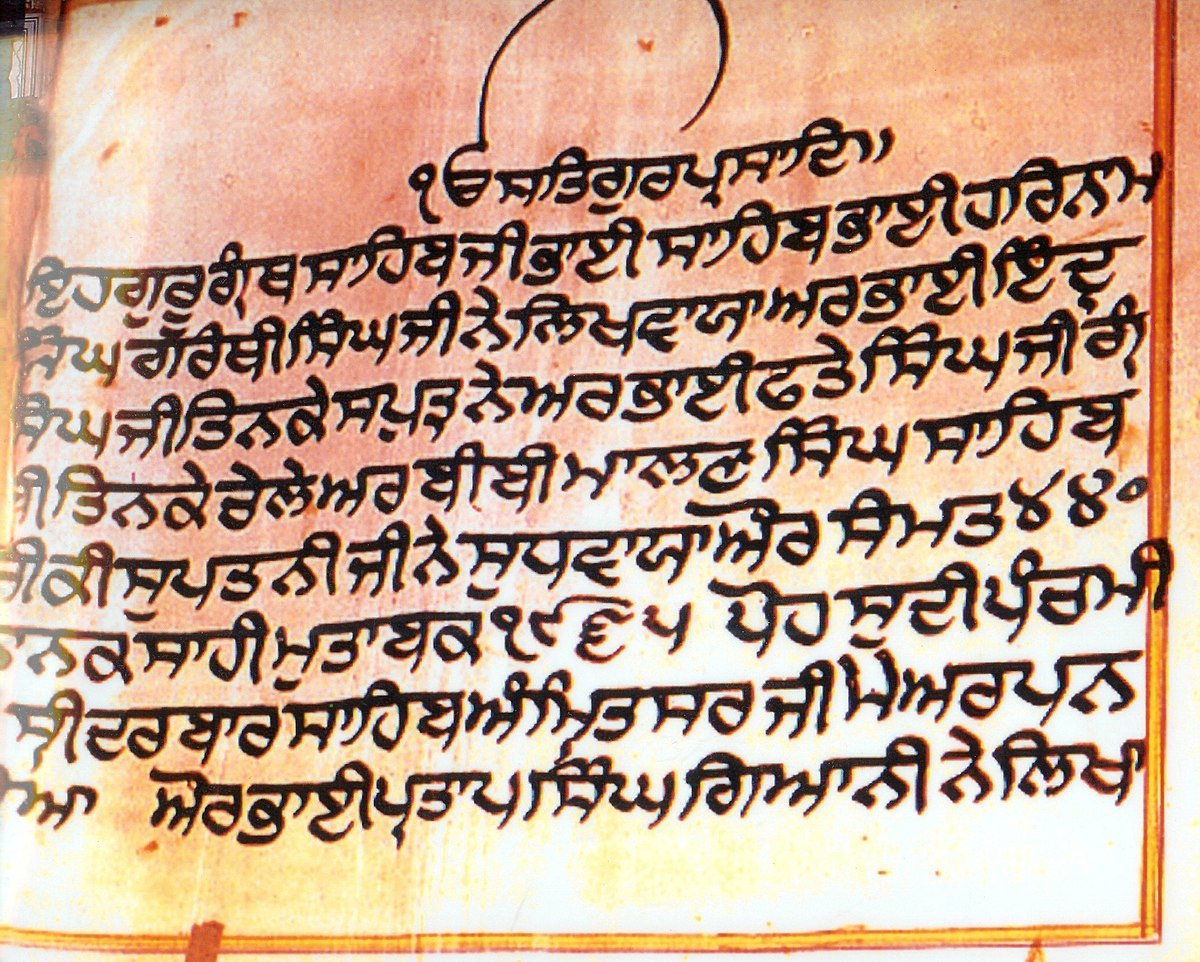 ੴ ਸਤਿਗੁਰ ਪ੍ਰਸਾਦਿ॥
ਇਹ ਗੁਰੂ ਗ੍ਰੰਥ ਸਾਹਿਬ ਜੀ ਭਾਈ ਸਾਹਿਬ ਭਾਈ ਹਰਿਨਾਮ
ਸਿੰਘ ਗ੍ਰੰਥੀ ਸਿੰਘ ਜੀ ਨੇ ਲਿਖਵਾਯਾ ਅਰ ਭਾਈ ਇੰਦ੍ਰ
ਸਿੰਘ ਜੀ ਤਿਨਕੇ ਸਪੁਤ੍ਰ ਨੇ ਅਰ ਭਾਈ ਫਤੇ ਸਿੰਘ ਜੀ ਗ੍ਰੰ
ਥੀ ਤਿਨਕੇ ਚੇਲੇ ਅਰ ਬੀਬੀ ਮਾਲਣ ਸਿੰਘ ਸਾਹਿਬ
ਕੀ ਸੁਪਤਨੀ ਜੀ ਨੇ ਸੁਧਵਾਯਾ ਔਰ ਸੰਮਤ ੪੪੦
ਨਾਨਕ ਸਾਹੀ ਮੁਤਾਬਕ ੧੯੬੫ ਪੋਹ ਸੁਦੀ ਪੰਚਮੀ
ਸ੍ਰੀ ਦਰਬਾਰ ਸਾਹਿਬ ਅੰਮ੍ਰਿਤਸਰ ਜੀ ਮੇ ਅਰਪਨ
ਕੀਆ ਔਰ ਭਾਈ ਪ੍ਰਤਾਪ ਸਿੰਘ ਗਿਆਨੀ ਨੇ ਲਿਖਾ